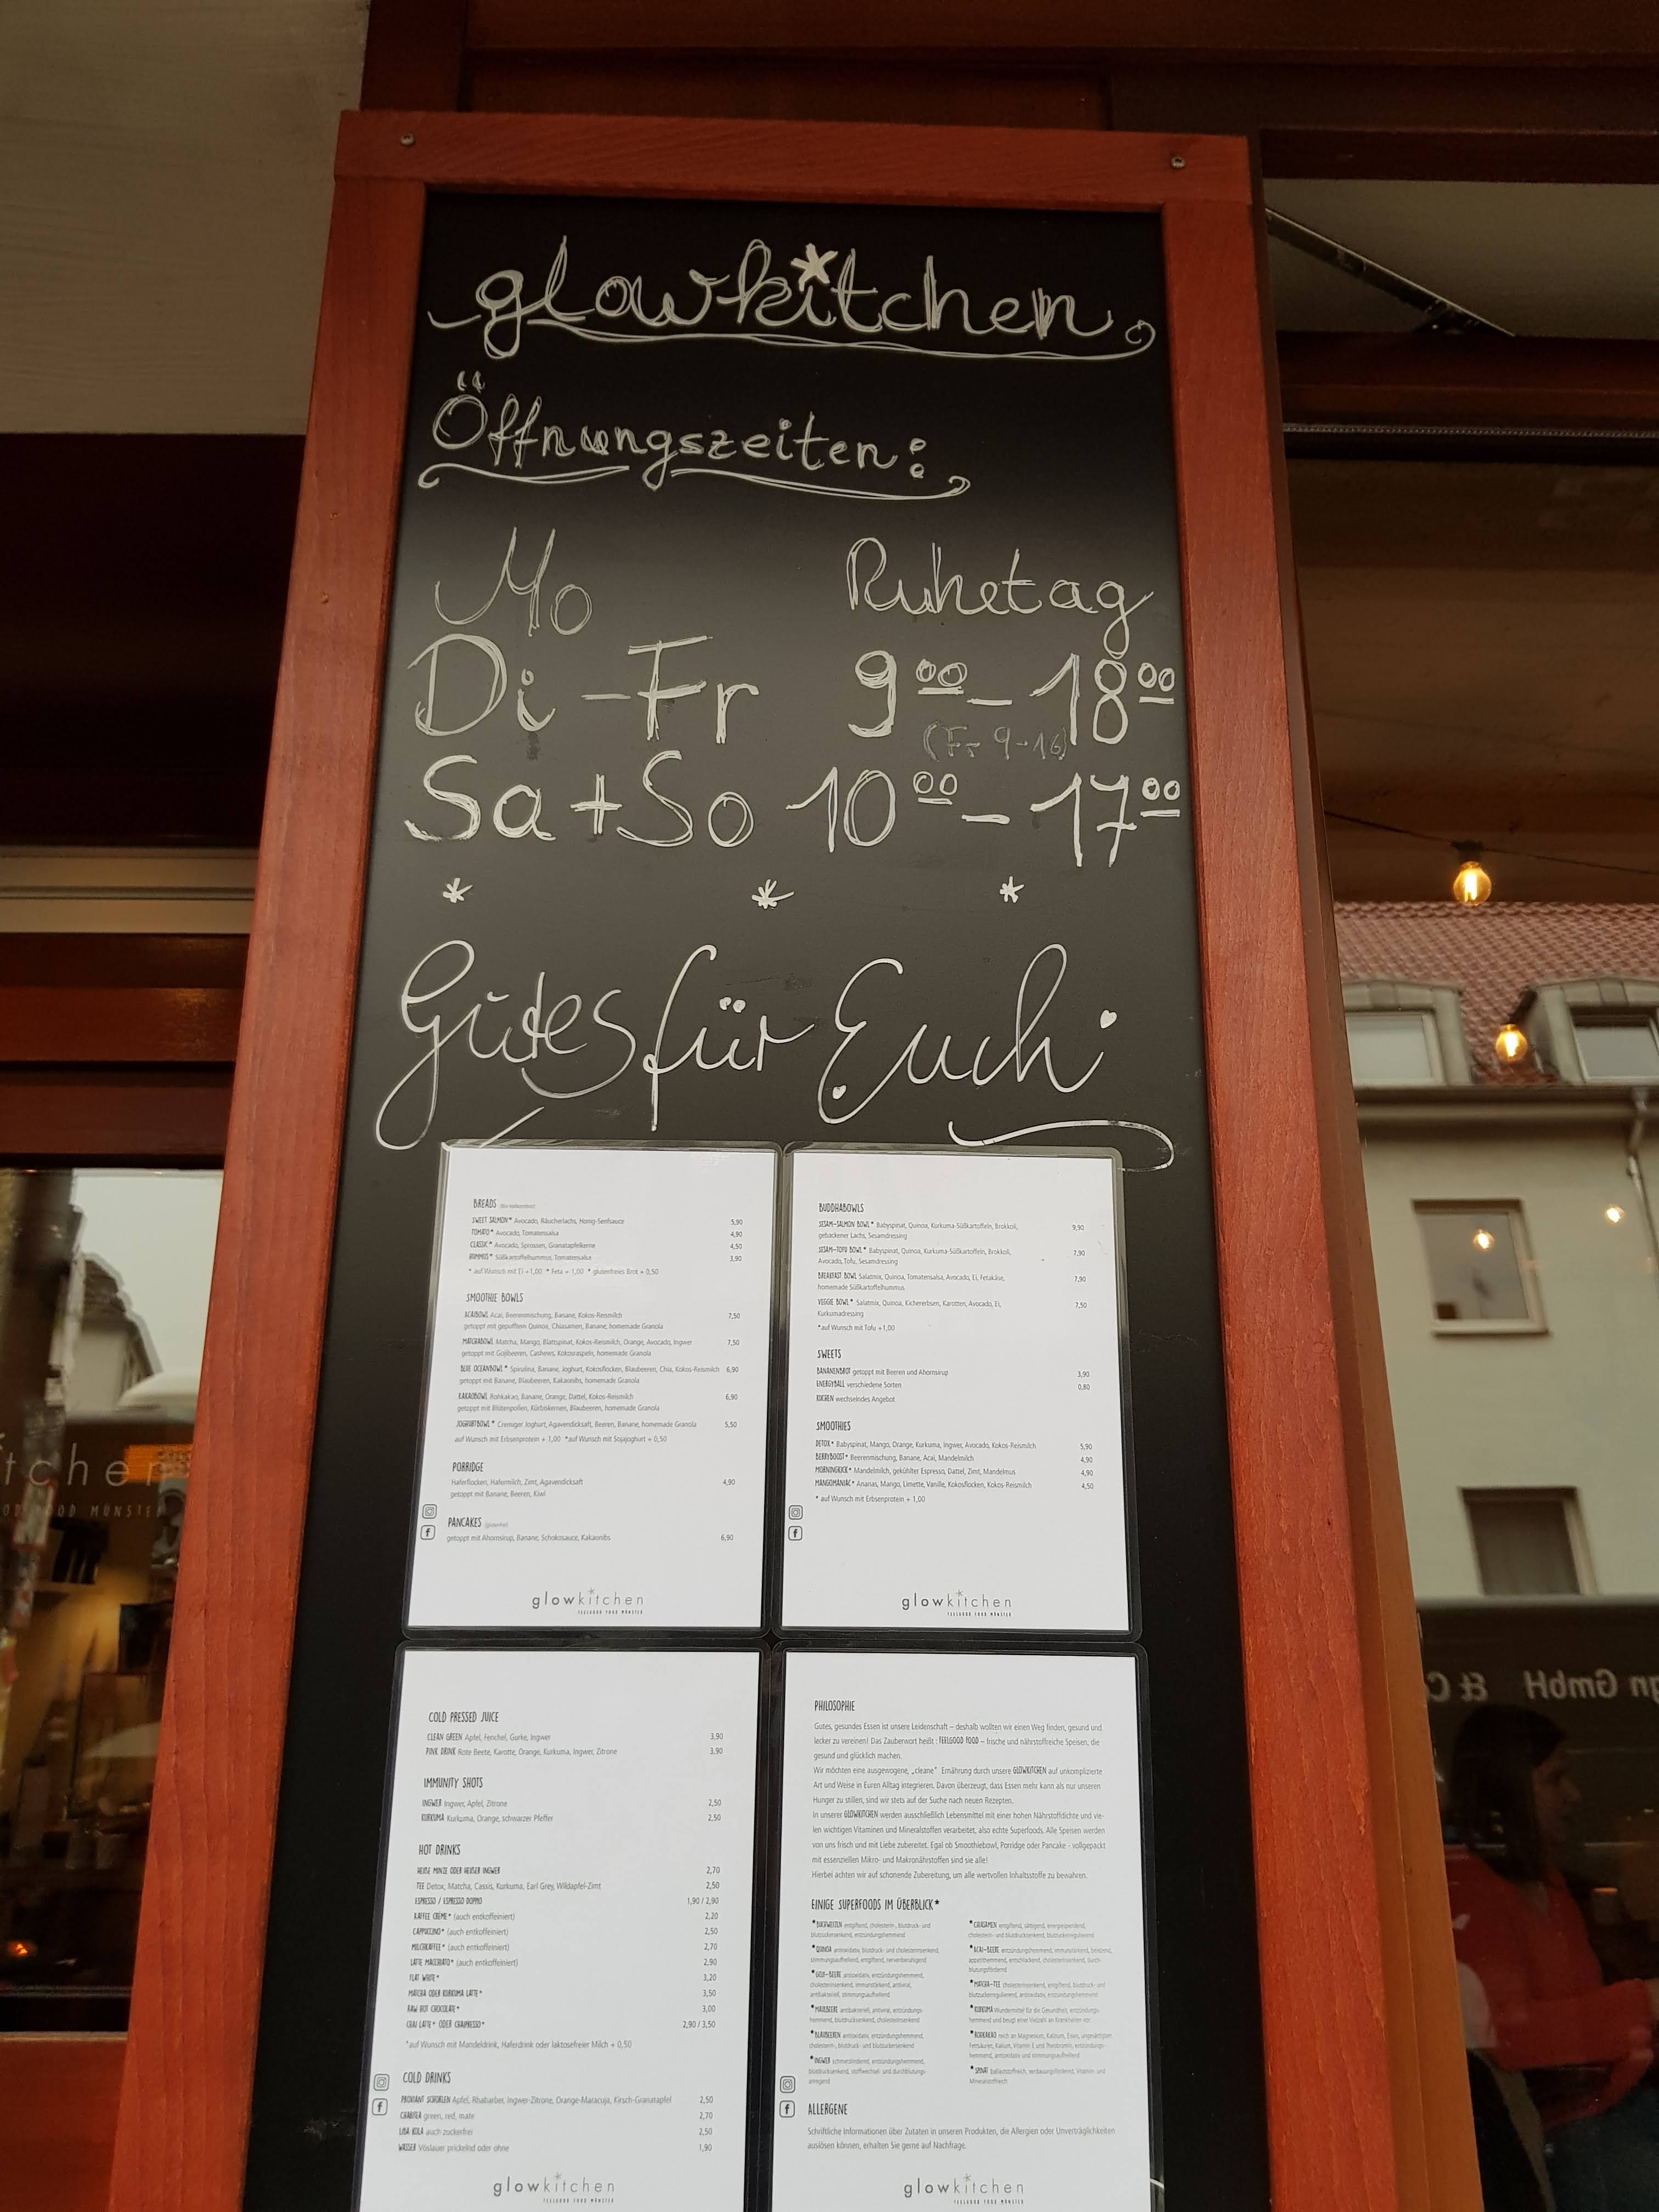 glowkitchen
Öffnungszeiten:
Mo Ruhetag
Di - Fr 9⁰⁰ - 18⁰⁰
(Fr 9-16)
Sa + So 10⁰⁰ - 17⁰⁰
* * *
Gutes für Euch
BREADS
SWEET SALMON* Avocado, Räucherlachs, Honig-Senfsauce 5,90
TOMATO* Avocado, Tomatensalsa 4,90
CLASSIC* Avocado, Sprossen, Granatapfelkerne 4,50
HUMMUS* Süßkartoffelhummus, Tomatensalsa 3,90
* auf Wunsch mit Ei +1,00 * Feta + 1,00 * glutenfreies Brot + 0,50
SMOOTHIE BOWLS
ACAIBOWL Acai, Beerenmischung, Banane, Kokos-Reismilch 7,50
getoppt mit gepufftem Quinoa, Chiasamen, Banane, homemade Granola
MATCHABOWL Matcha, Mango, Blattspinat, Kokos-Reismilch, Orange, Avocado, Ingwer 7,50
getoppt mit Gojibeeren, Cashews, Kokosraspeln, homemade Granola
BLUE OCEANBOWL* Spirulina, Banane, Joghurt, Kokosflocken, Blaubeeren, Chia, Kokos-Reismilch 6,90
getoppt mit Banane, Blaubeeren, Kakaonibs, homemade Granola
KAKAOBOWL Rohkakao, Banane, Orange, Dattel, Kokos-Reismilch 6,90
getoppt mit Blütenpollen, Kürbiskernen, Blaubeeren, homemade Granola
JOGHURTBOWL* Cremiger Joghurt, Agavendicksaft, Beeren, Banane, homemade Granola 5,50
auf Wunsch mit Erbsenprotein + 1,00 *auf Wunsch mit Sojajoghurt + 0,50
PORRIDGE
Haferflocken, Hafermilch, Zimt, Agavendicksaft 4,90
getoppt mit Banane, Beeren, Kiwi
PANCAKES (glutenfrei)
getoppt mit Ahornsirup, Banane, Schokosauce, Kakaonibs 6,90
glowkitchen
FEELGOOD FOOD MÜNSTER
BUDDHABOWLS
SESAM-SALMON BOWL* Babyspinat, Quinoa, Kurkuma-Süßkartoffeln, Brokkoli, 9,90
gebackener Lachs, Sesamdressing
SESAM-TOFU BOWL* Babyspinat, Quinoa, Kurkuma-Süßkartoffeln, Brokkoli, 7,90
Avocado, Tofu, Sesamdressing
BREAKFAST BOWL Salatmix, Quinoa, Tomatensalsa, Avocado, Ei, Fetakäse, 7,90
homemade Süßkartoffelhummus
VEGGIE BOWL* Salatmix, Quinoa, Kichererbsen, Karotten, Avocado, Ei, 7,50
Kurkumadressing
*auf Wunsch mit Tofu +1,00
SWEETS
BANANENBROT getoppt mit Beeren und Ahornsirup 3,90
ENERGYBALL verschiedene Sorten 0,80
KUCHEN wechselndes Angebot
SMOOTHIES
DETOX* Babyspinat, Mango, Orange, Kurkuma, Ingwer, Avocado, Kokos-Reismilch 5,90
BERRYBOOST* Beerenmischung, Banane, Acai, Mandelmilch 4,90
MORNINGKICK* Mandelmilch, gekühlter Espresso, Dattel, Zimt, Mandelmus 4,90
MANGOMANIAC* Ananas, Mango, Limette, Vanille, Kokosflocken, Kokos-Reismilch 4,50
* auf Wunsch mit Erbsenprotein + 1,00
glowkitchen
FEELGOOD FOOD MÜNSTER
COLD PRESSED JUICE
CLEAN GREEN Apfel, Fenchel, Gurke, Ingwer 3,90
PINK DRINK Rote Beete, Karotte, Orange, Kurkuma, Ingwer, Zitrone 3,90
IMMUNITY SHOTS
INGWER Ingwer, Apfel, Zitrone 2,50
KURKUMA Kurkuma, Orange, schwarzer Pfeffer 2,50
HOT DRINKS
HEIßE MINZE ODER HEIßER INGWER 2,70
TEE Detox, Matcha, Cassis, Kurkuma, Earl Grey, Wildapfel-Zimt 2,50
ESPRESSO / ESPRESSO DOPPIO 1,90 / 2,90
KAFFEE CREME* (auch entkoffeiniert) 2,20
CAPPUCCINO* (auch entkoffeiniert) 2,50
MILCHKAFFEE* (auch entkoffeiniert) 2,70
LATTE MACCHIATO* (auch entkoffeiniert) 2,90
FLAT WHITE* 3,20
MATCHA ODER KURKUMA LATTE* 3,50
RAW HOT CHOCOLATE* 3,00
CHAI LATTE* ODER CHAIPRESSO* 2,90 / 3,50
*auf Wunsch mit Mandeldrink, Haferdrink oder laktosefreier Milch + 0,50
COLD DRINKS
PROVIANT SCHORLEN Apfel, Rhabarber, Ingwer-Zitrone, Orange-Maracuja, Kirsch-Granatapfel 2,50
CHARITEA green, red, mate 2,70
LIBA KOLA auch zuckerfrei 2,50
WASSER Vöslauer prickelnd oder ohne 1,90
glowkitchen
FEELGOOD FOOD MÜNSTER
PHILOSOPHIE
Gutes, gesundes Essen ist unsere Leidenschaft – deshalb wollten wir einen Weg finden, gesund und
lecker zu vereinen! Das Zauberwort heißt : FEELGOOD FOOD – frische und nährstoffreiche Speisen, die
gesund und glücklich machen.
Wir möchten eine ausgewogene, „cleane“ Ernährung durch unsere GLOWKITCHEN auf unkomplizierte
Art und Weise in Euren Alltag integrieren. Davon überzeugt, dass Essen mehr kann als nur unseren
Hunger zu stillen, sind wir stets auf der Suche nach neuen Rezepten.
In unserer GLOWKITCHEN werden ausschließlich Lebensmittel mit einer hohen Nährstoffdichte und vie-
len wichtigen Vitaminen und Mineralstoffen verarbeitet, also echte Superfoods. Alle Speisen werden
von uns frisch und mit Liebe zubereitet. Egal ob Smoothiebowl, Porridge oder Pancake - vollgepackt
mit essenziellen Mikro- und Makronährstoffen sind sie alle!
Hierbei achten wir auf schonende Zubereitung, um alle wertvollen Inhaltsstoffe zu bewahren.
EINIGE SUPERFOODS IM ÜBERBLICK*
*BUCHWEIZEN entgiftend, cholesterin-, blutdruck- und
blutzuckersenkend, entzündungshemmend
*QUINOA antioxidativ, blutdruck- und cholesterinsenkend,
stimmungsaufhellend, entgiftend, nervenberuhigend
*GOJI-BEERE antioxidativ, entzündungshemmend,
cholesterinsenkend, immunstärkend, antiviral,
antibakteriell, stimmungsaufhellend
*MAULBEERE antibakteriell, antiviral, entzündungs-
hemmend, blutdrucksenkend, cholesterinsenkend
*BLAUBEEREN antioxidativ, entzündungshemmend,
cholesterin-, blutdruck- und blutzuckersenkend
*INGWER schmerzlindernd, entzündungshemmend,
blutdrucksenkend, stoffwechsel- und durchblutungs-
anregend
*CHIASAMEN entgiftend, sättigend, energiespendend,
cholesterin- und blutdrucksenkend, blutzuckerregulierend
*ACAI-BEERE entzündungshemmend, immunstärkend, belebend,
appetithemmend, entschlackend, cholesterinsenkend, durch-
blutungsfördernd
*MATCHA-TEE cholesterinsenkend, entgiftend, blutdruck- und
blutzuckerregulierend, antioxidativ, entzündungshemmend
*KURKUMA Wundermittel für die Gesundheit, entzündungs-
hemmend und beugt einer Vielzahl an Krankheiten vor
*ROHKAKAO reich an Magnesium, Kalzium, Eisen, ungesättigten
Fettsäuren, Kalium, Vitamin E und Theobromin, entzündungs-
hemmend, antioxidativ und stimmungsaufhellend
*SPINAT ballaststoffreich, verdauungsfördernd, Vitamin- und
Mineralstoffreich
ALLERGENE
Schriftliche Informationen über Zutaten in unseren Produkten, die Allergien oder Unverträglichkeiten
auslösen können, erhalten Sie gerne auf Nachfrage.
glowkitchen
FEELGOOD FOOD MÜNSTER
tchen
OOD MÜNSTER
gn GmbH & C